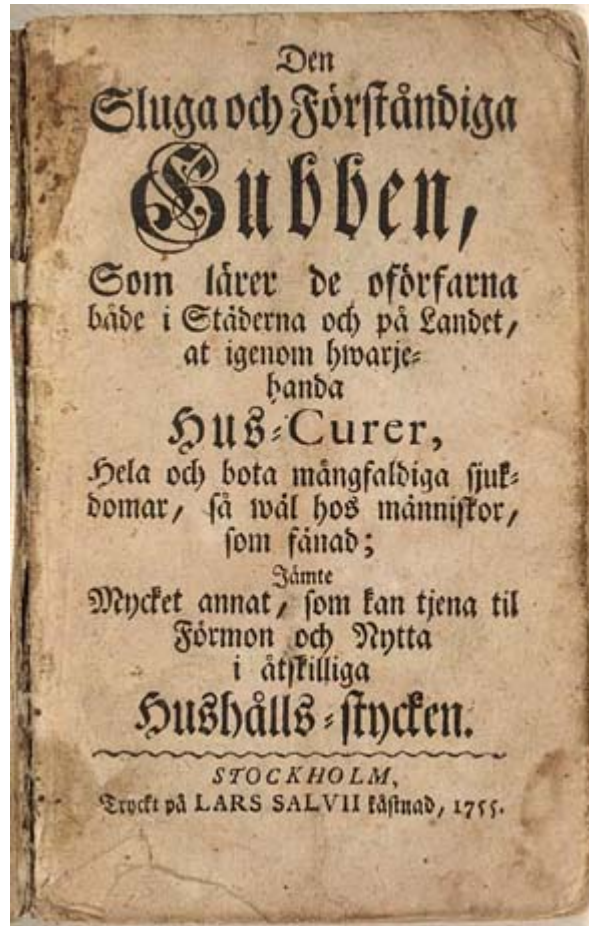 Den
Sluga och Förståndiga
Gubben,
Som lärer de oförfarna
både i Städerna och på Landet,
at igenom hwarje-
handa
Hus-Curer,
Hela och bota mångfaldiga sjuk-
domar, så wäl hos människor,
som fänad;
Jämte
Mycket annat, som kan tjena til
Förmon och Nytta
i åtskilliga
Hushålls-stycken.
STOCKHOLM,
Tryckt på LARS SALVII kåstnad, 1755.